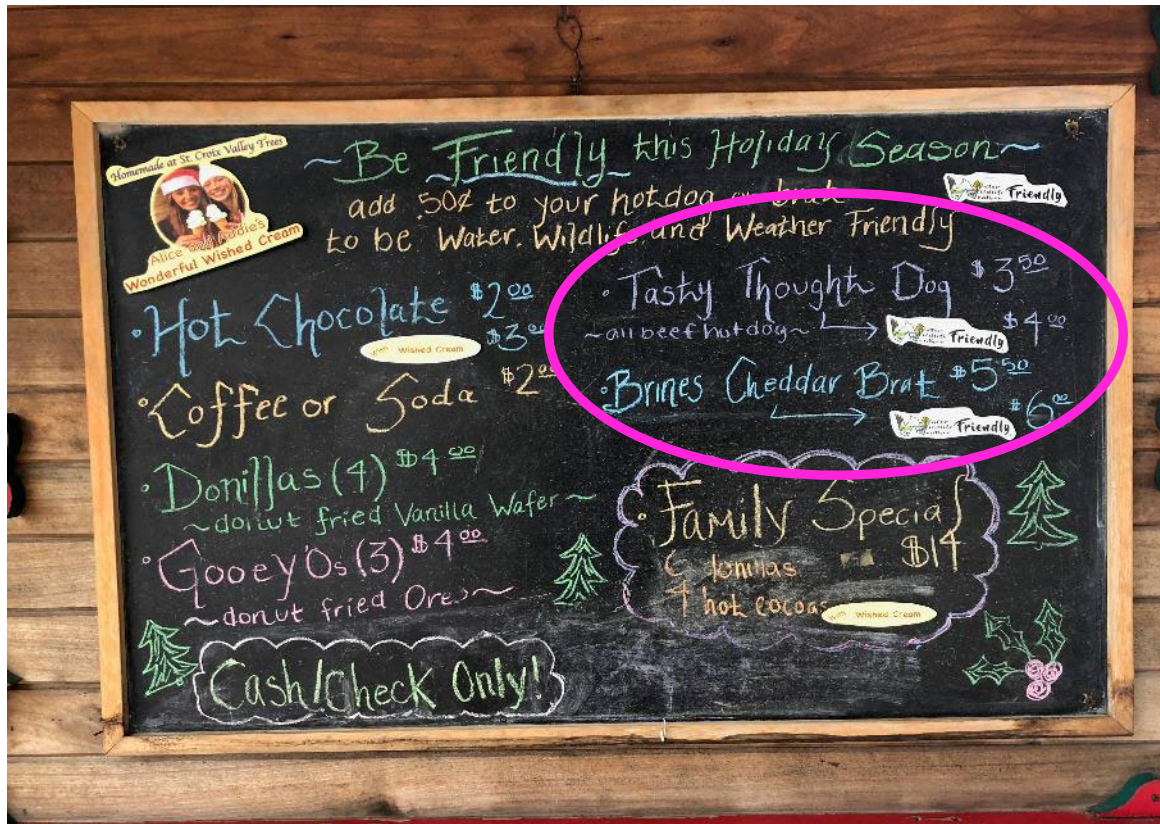 Homemade at St. Croix Valley Trees
Alice and Audie's
Wonderful Wished Cream
~Be Friendly this Holiday Season~
add .50¢ to your hotdog or brat
to be Water, Wildlife, and Weather Friendly
Friendly
• Hot Chocolate $2.00
with Wished Cream $3.00
• Coffee or Soda $2.00
• Donillas (4) $4.00
~donut fried Vanilla Wafer~
• Gooey Os (3) $4.00
~donut fried Oreo~
Cash/Check Only!
• Tasty Thought Dog $3.50
~all beef hotdog~ → Friendly $4.00
• Brines Cheddar Brat $5.50
→ Friendly $6.00
• Family Special
$14
donillas
4 hot cocoas with Wished Cream